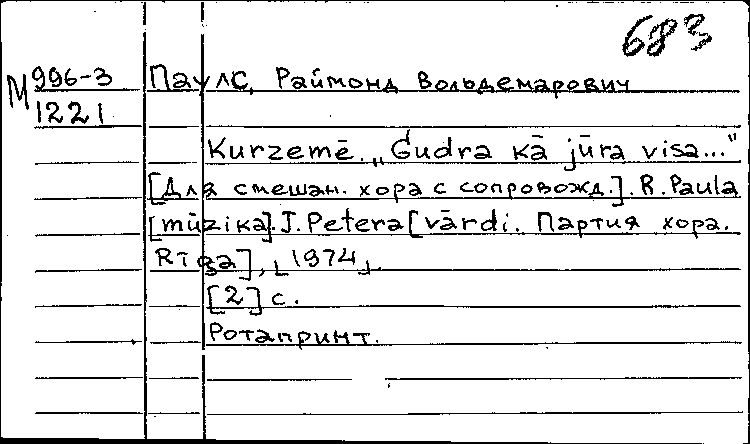 683
М 996-3 Паулс, Раймонд Вольдемарович
1221
Kurzemē. „Gudra kā jūra visa..."
[Для смешан. хора с сопровожд.]. R. Paula
[mūzika]. J. Petera [vārdi. Партия хора.
Rīga], [1974].
[2] с.
Ротапринт.